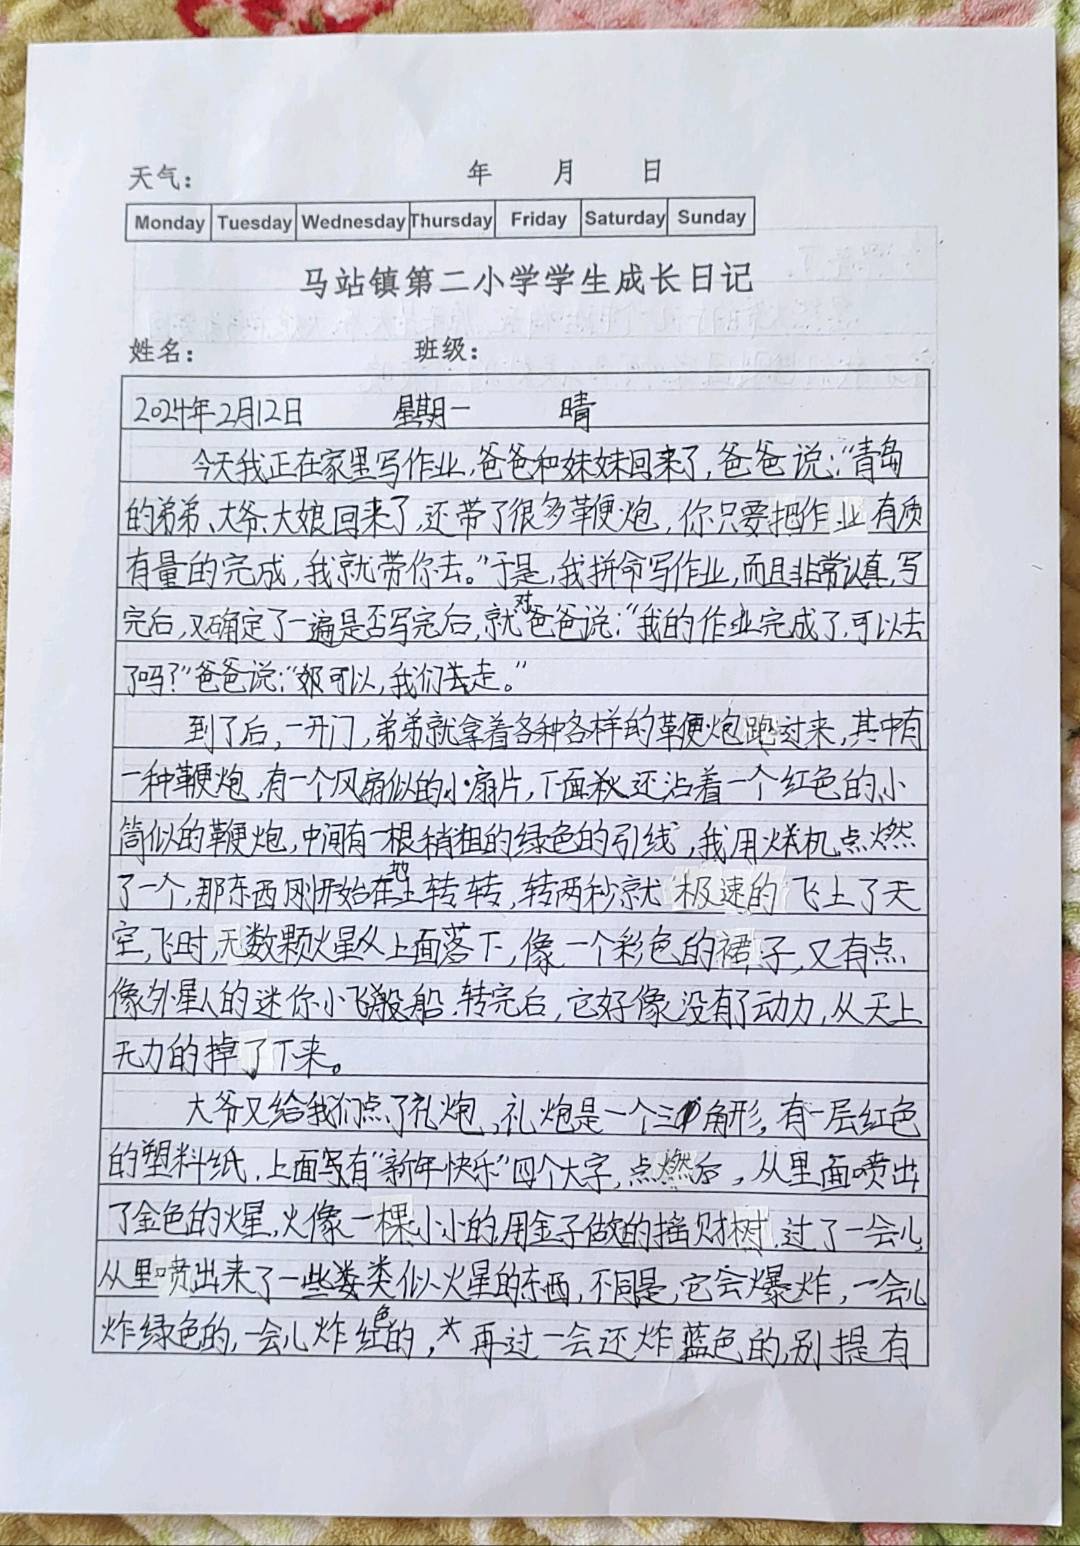 天气： 年 月 日
Monday Tuesday Wednesday Thursday Friday Saturday Sunday
马站镇第二小学学生成长日记
姓名： 班级：
2024年2月12日 星期一 晴
今天我正在家里写作业，爸爸和妹妹回来了，爸爸说：“青岛
的弟弟、大爷、大娘回来了，还带了很多鞭炮，你只要把作业有质
有量的完成，我就带你去。”于是，我拼命写作业，而且非常认真，写
完后，又确定了一遍是否写完后，就对爸爸说：“我的作业完成了，可以去
了吗？”爸爸说：“可以，我们走。”
到了后，一开门，弟弟就拿着各种各样的鞭炮跑过来，其中有
一种鞭炮，有一个风扇似的小扇片，下面还沾着一个红色的小
筒似的鞭炮，中间有一根稍粗的绿色的引线，我用火机点燃
了一个，那东西刚开始在地上转转，转两秒就极速的飞上了天
空，飞时，无数颗火星从上面落下，像一个彩色的裙子，又有点
像外星人的迷你小飞船，转完后，它好像没有了动力，从天上
无力的掉了下来。
大爷又给我们点了礼炮，礼炮是一个三角形，有一层红色
的塑料纸，上面写有“新年快乐”四个大字，点燃后，从里面喷出
了金色的火星，火像一棵小小的，用金子做的摇财树，过了一会儿，
从里喷出来了一些类似火星的东西，不同是，它会爆炸，一会儿
炸绿色的，一会儿炸红色的，再过一会还炸蓝色的，别提有